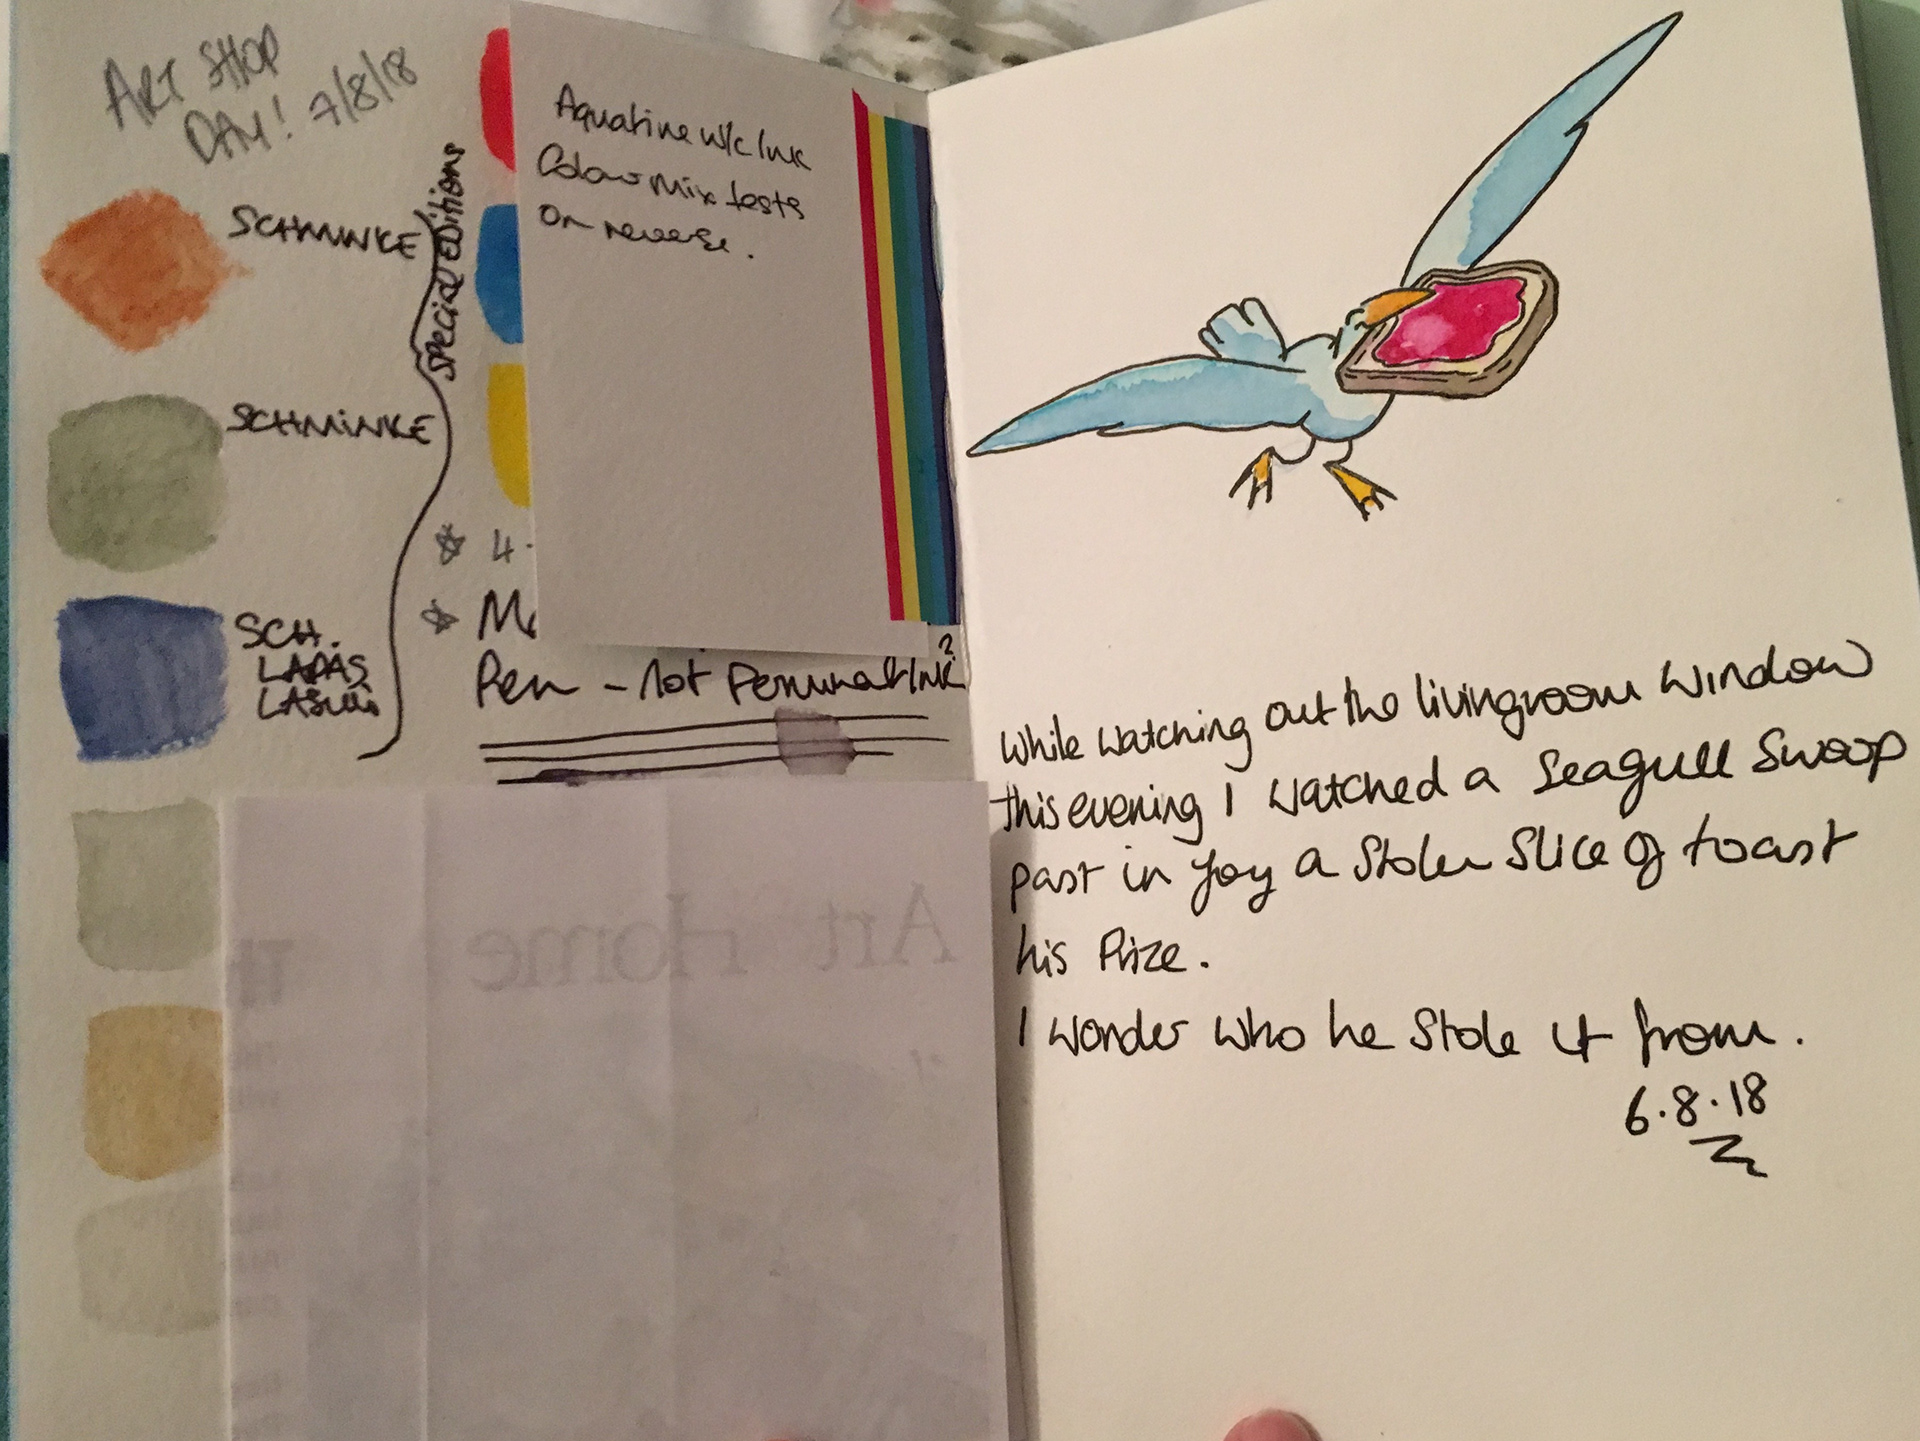 ART SHOP
DAY! 7/8/18
SCHMINKE
SCHMINKE
SCH.
LAPAS
LASULI
SPECIAL EDITIONS
Aquatine w/c Ink
Colour Mix tests
on reverse.
4.
M
Pen - not Permanat Ink?
Art Home
Th
While watching out the livingroom window
this evening I watched a Seagull Swoop
past in joy a Stolen Slice of toast
his Prize.
I wonder who he Stole it from.
6.8.18